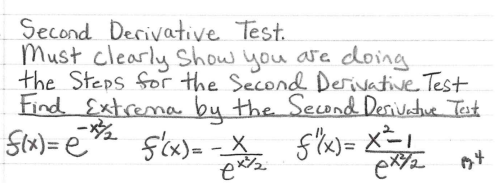 Second Derivative Test.
Must clearly show you are doing
the Steps for the Second Derivative Test
Find Extrema by the Second Derivative Test
f(x) = e^{-x²/2} f'(x) = -x/e^{x²/2} f''(x) = (x²-1)/e^{x²/2} pg 4